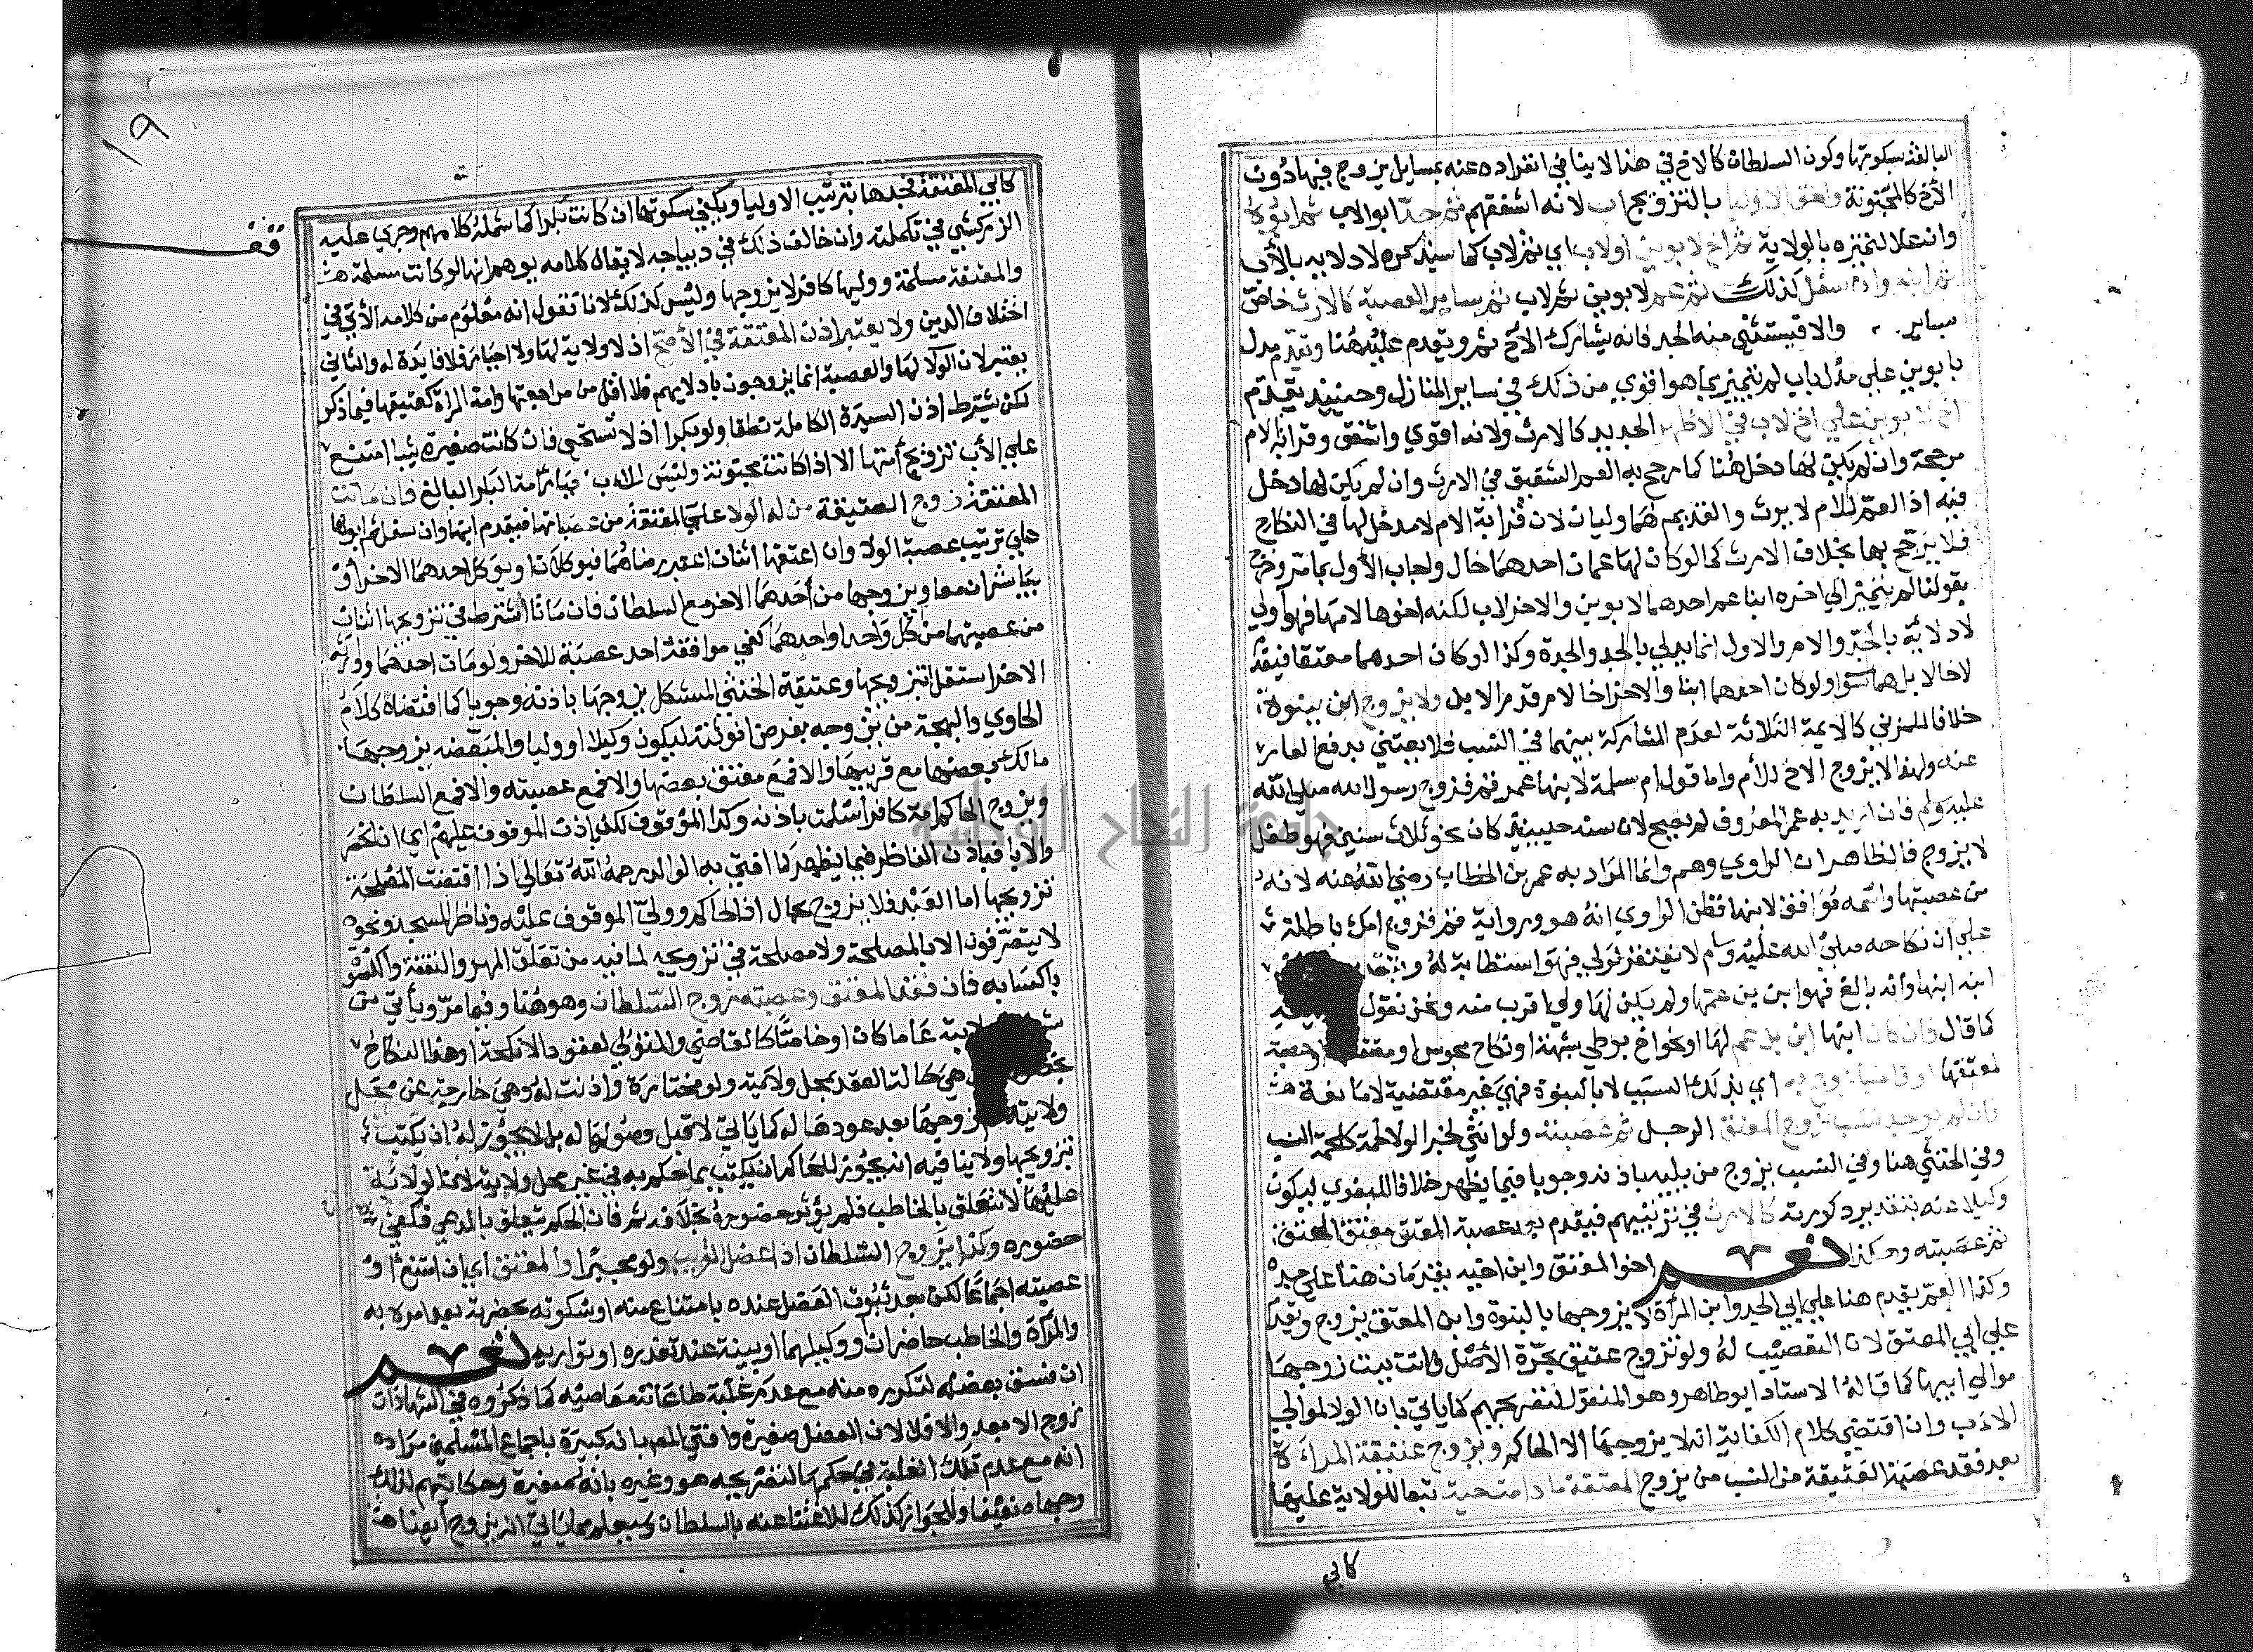 البالغة بسكوتها وكون السلطان كالاخ في هذا لاينافي انفراده عنه بمسايل يزوج فيها دون
الأخ كالمجنونة واحق الاوليا بالتزويج اب لانه اشفقهم ثم جد ابو الاب ثم ابوه
وان علا لتميزه بالولاية ثم اخ لابوين او لاب اي ثم لاب كما سيذكره لادلايه بالأب
ثم ابنه وان سفل كذلك ثم عم لابوين ثم لاب ثم ساير العصبة كالارث خاص
بساير والا فيستثني منه الجد فانه يشارك الأخ ثم ويقدم عليه هنا وتقدم مدل
بابوين علي مدل باب لم يتميز بما هو اقوي من ذلك في ساير المنازل وحينيذ يقدم
اخ لابوين علي اخ لاب في الاظهر الجديد كالارث ولانه اقوي واشفق وقرابة الام
مرجحة وان لم يكن لها دخل هنا كما رجح به العم الشقيق في الارث وان لم يكن لها دخل
فيه اذ العم للام لا يرث والقديم هما وليان لان قرابة الام لا مدخل لها في النكاح
فلا يترجح بها بخلاف الارث كما لو كان لها عمان احدهما خال واجاب الأول بما مر وخرج
بقولنا لم يتميز الي اخره ابنا عم احدهما لابوين والاخر لاب لكنه اخوها لامها فهو اولي
لادلائه بالجد والام والاول انما يدلي بالجد والجدة وكذا لو كان احدهما معتقا فيقد
لا خالا بل هما سوا ولو كان احدهما ابنا والاخر اخا لام قدم الابن ولا يزوج ابن ببنوة
خلافا للمزني كالايمة الثلاثة لعدم المشاركة بينهما في النسب فلا يعتني بدفع العار
عنه ولهذا لا يزوج الاخ للأم واما قول ام سلمة لابنها عمر قم فزوج رسول الله صلي الله
عليه ولم فان اريد به عمر المعروف لم يصح لان سنه حينيذ كان نحو ثلاث سنين فهو طفل
لا يزوج فالظاهر ان الراوي وهم وانما المراد به عمر بن الخطاب رضي الله عنه لانه
من عصبتها واسمه موافق لابنها فظن الراوي انه هو ورواية قم فزوج امك باطلة
علي ان نكاحه صلي الله عليه وسلم لا يفتقر لولي فهو استطابة له
ابنه ابنها وانه بالغ فهو ابن بن عمها ولم يكن لها ولي اقرب منه ونحن نقول
كما قال فان كان ابنها ابن بن عم لها او نحو اخ بوطي شبهة او نكاح مجوس او معتقا
لمعتقها او قاضيا زوج به اي بذلك السبب لا بالبنوة فهي غير مقتضية لا مانعة
فان لم يوجد نسب زوج المعتق الرجل ثم عصبته ولو انثي لخبر الولا لحمة كلحمة النسب
وفي الخنثي هنا وفي النسب يزوج من يليه باذنه وجوبا فيما يظهر خلافا للبغوي ليكون
وكيلا عنه بتقدير ذكورته كالارث في ترتيبهم فيقدم بعد عصبة المعتق معتق المعتق
ثم عصبته وهكذا نعم اخو المعتق وابن اخيه يقدمان هنا علي جده
وكذا العم يقدم هنا علي ابي الجد وابن المرأة لا يزوجها بالبنوة وابن المعتق يزوج ويقد
علي ابي المعتق لان التعصيب له ولو تزوج عتيق بحرة الأصل فاتت ببنت زوجها
موالي ابيها كما قاله الاستاد ابو طاهر وهو المنقول لتصريحهم كما ياتي بان الولا لموالي
الاب وان اقتضي كلام الكفاية انه لا يزوجها الا الحاكم ويزوج عتيقة المرأة
بعد فقد عصبة العتيقة من النسب من يزوج المعتقة ما دامت حية تبعا للولاية عليها
كابي
١٩
قف
كابي المعتقة فجدها بترتيب الاوليا ويكفي سكوتها ان كانت بكرا كما شمله كلامهم وجري عليه
الزركشي في تكملته وان خالف ذلك في ديباجه لا يقال كلامه يوهم انها لو كانت مسلمة
والمعتقة مسلمة ووليها كافر لا يزوجها وليس كذلك لانا نقول انه معلوم من كلامه الأتي في
اختلاف الدين ولا يعتبر اذن المعتقة في الأصح اذ لا ولاية لها ولا اجبار فلا فايدة له والثاني
يعتبر لان الولا لها والعصبة انما يزوجون بادلايهم فلا اقل من مراجعتها وامة المرأة كعتيقها فيما ذكر
لكن يشترط اذن السيدة الكاملة نطقا ولو بكرا اذ لا تستحي فان كانت صغيرة ثيبا امتنع
علي الأب تزويج أمتها الا اذا كانت مجنونة وليس للاب اجبار امة البكر البالغ فان ماتت
المعتقة زوج العتيقة من له الولا علي المعتقة من عصباتها فيقدم ابنها وان سفل ثم ابوها
علي ترتيب عصبة الولا وان اعتقها اثنان اعتبر رضاهما فيوكلان او يوكل احدهما الاخر أو
يباشران معا ويزوجها من أحدهما الاخر مع السلطان فان ماتا اشترط في تزويجها اثنان
من عصبتهما من كل واحد او احدهما كفي موافقة احد عصبة للاخر ولو مات احدهما وورثه
الاخر استقل بتزويجها وعتيقة الخنثي المشكل يزوجها باذنه وجوبا كما اقتضاه كلام
الحاوي والبهجة من يزوجه بفرض انوثته ليكون وكيلا او وليا والمبعضه يزوجها
مالك بعضها مع قريبها والا فمع معتق بعضها والا فمع عصبته والا فمع السلطان
ويزوج الحاكم امة كافر اسلمت باذنه وكذا الموقوف لكن باذن الموقوف عليهم اي ان انحصر
والا فباذن الناظر فيما يظهر كما افتي به الوالد رحمه الله تعالي اذا اقتضت المصلحة
تزويجها اما العبد فلا يزوج بحال اذ الحاكم وولي الموقوف عليه وناظر المسجد ونحوه
لا يتصرفون الا بالمصلحة ولا مصلحة في تزويجه لما فيه من تعلق المهر والنفقة والكسوة
باكسابه فان فقد المعتق وعصبته زوج السلطان وهو هنا وفيما مر وياتي من
ولايته عاما كان او خاصا كالقاضي والمتولي لعقود الانكحة او هذا النكاح
هي حالة العقد بمحل ولايته ولو مجتازة واذنت له وهي خارجة عن محل
ولايته زوجها بعد عودها له كما ياتي لا قبل وصولها له بل لا يجوز له ان يكتب
تزويجها ولا ينافيه انه يجوز للحاكم ان يكتب بما حكم به في غير محل ولايته لان الولاية
عليها لا تتعلق بالخاطب فلم يؤثر حضوره بخلافه ثم فان الحكم يتعلق بالمدعي فكفي
حضوره وكذا يزوج السلطان اذا عضل القريب ولو مجبرا والمعتق اي ان امتنع او
عصبته اجماعا لكن بعد ثبوت العضل عنده بامتناع منه او سكوته بحضرته بعد امره به
والمرأة والخاطب حاضران او وكيلهما او بينة عند تعذره او تواريه نعم
ان فسق بعضله لتكرره منه مع عدم غلبة طاعاته معاصيه كما ذكروه في الشهادات
زوج الابعد والا فلا لان العضل صغيرة وافتي المص بانه كبيرة باجماع المسلمين مراده
انه مع عدم تلك الغلبة في حكمها لتصريحه هو وغيره بانه صغيرة وحكايتهم لذلك
وجها ضعيفا والجواز كذلك للاغنا عنه بالسلطان وسيعلم مما ياتي انه يزوج أيضا